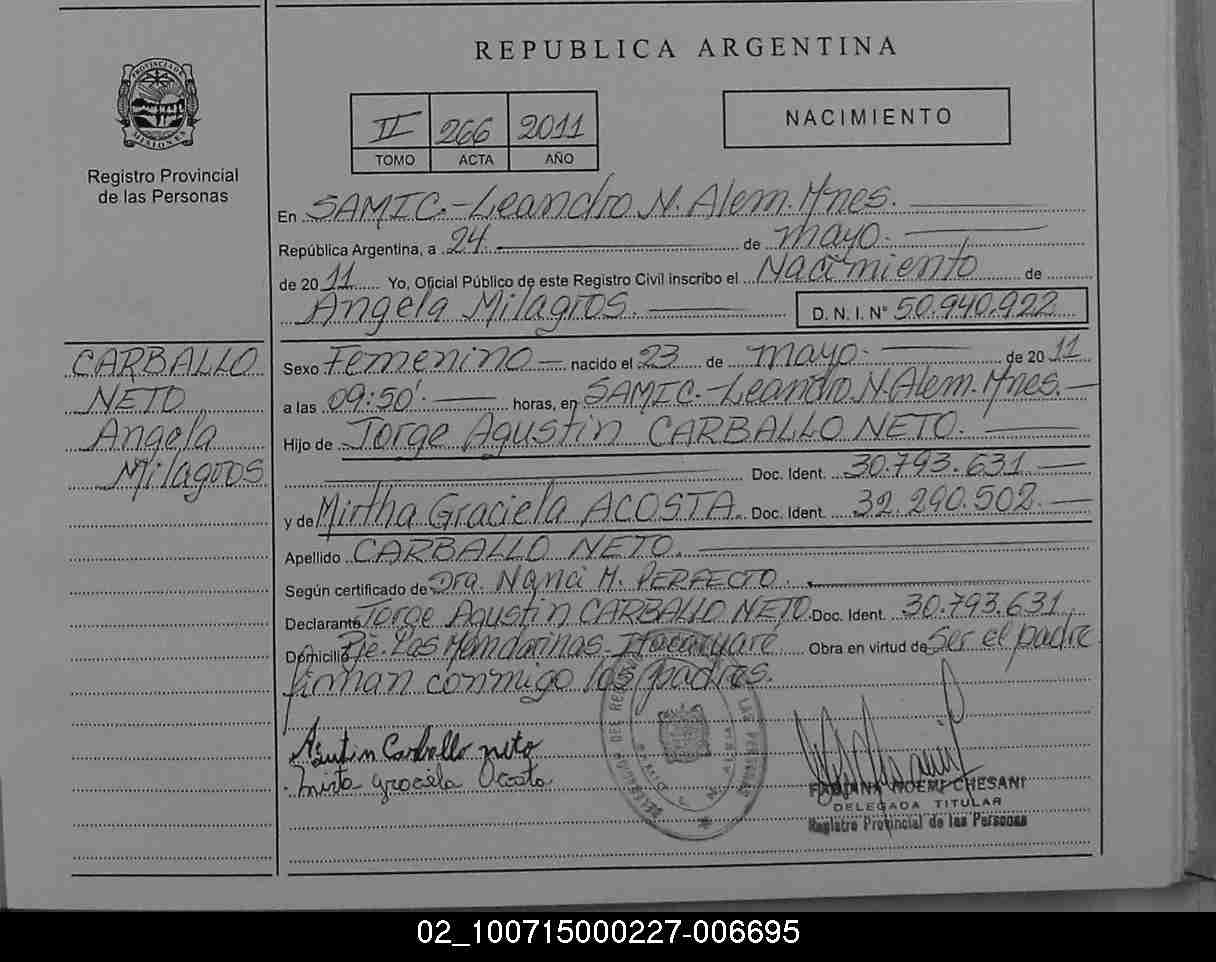 REPUBLICA ARGENTINA
PROVINCIA DE
MISIONES
Registro Provincial
de las Personas
II 266 2011
TOMO ACTA AÑO
NACIMIENTO
En SAMIC.-Leandro N. Alem. Mnes.
República Argentina, a 24 de mayo.
de 2011 Yo, Oficial Público de este Registro Civil inscribo el Nacimiento de
Angela Milagros. D. N. I. N° 50.940.922
CARBALLO
NETO
Angela
Milagros
Sexo Femenino nacido el 23 de mayo. de 2011
a las 09:50' horas, en SAMIC.-Leandro.N.Alem.Mnes.
Hijo de Jorge Agustin CARBALLO NETO.
Doc. Ident. 30.793.631
y de Mirtha Graciela ACOSTA. Doc. Ident. 32.290.502.
Apellido CARBALLO NETO.
Según certificado de Dra. Nanci M. PERFECTO.
Declarante Jorge Agustin CARBALLO NETO. Doc. Ident. 30.793.631
Domicilio Pje. Las Mandarinas. Itacaruaré Obra en virtud de Ser el padre
firman conmigo los padres.
Agustin Carballo neto
mirta graciela Acosta
FABIANA NOEMI CHESANI
DELEGADA TITULAR
Registro Provincial de las Personas
02_100715000227-006695